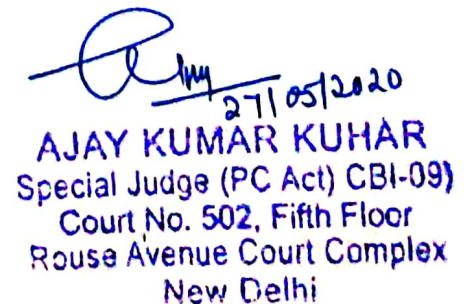 27/05/2020
AJAY KUMAR KUHAR
Special Judge (PC Act) CBI-09)
Court No. 502, Fifth Floor
Rouse Avenue Court Complex
New Delhi